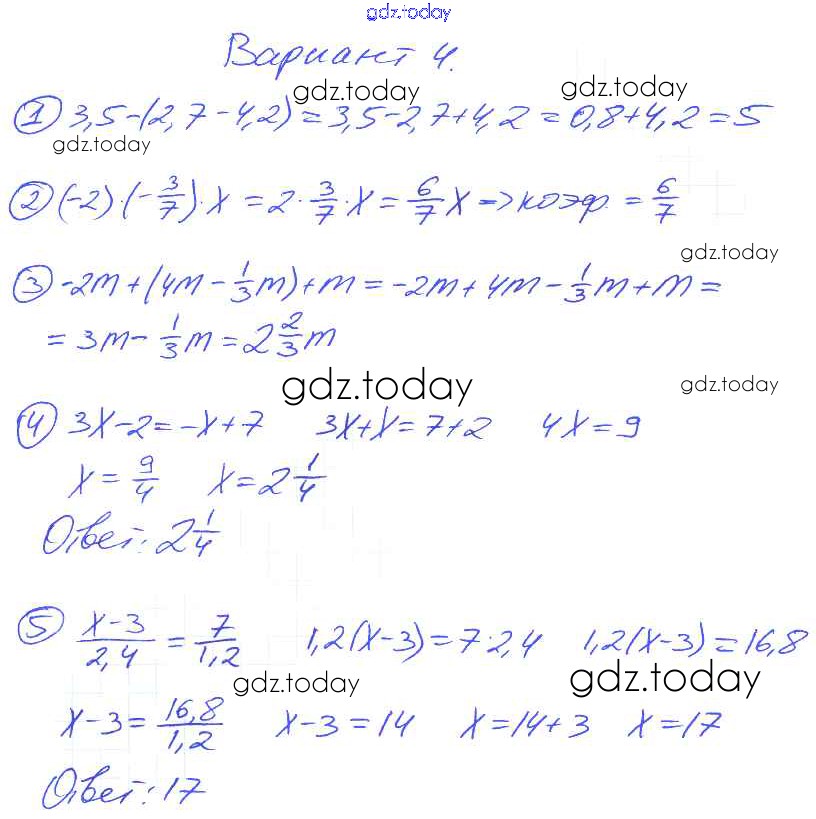 gdz.today
Вариант 4.
gdz.today gdz.today
① 3,5-(2,7-4,2)=3,5-2,7+4,2=0,8+4,2=5
gdz.today
② (-2)·(-3/7)·x=2·3/7·x=6/7x=>коэф.=6/7
gdz.today
③ -2m+(4m-1/3m)+m=-2m+4m-1/3m+m=
=3m-1/3m=2 2/3m
gdz.today gdz.today
④ 3x-2=-x+7 3x+x=7+2 4x=9
x=9/4 x=2 1/4
Ответ: 2 1/4
⑤ x-3/2,4=7/1,2 1,2(x-3)=7·2,4 1,2(x-3)=16,8
gdz.today gdz.today
x-3=16,8/1,2 x-3=14 x=14+3 x=17
Ответ: 17